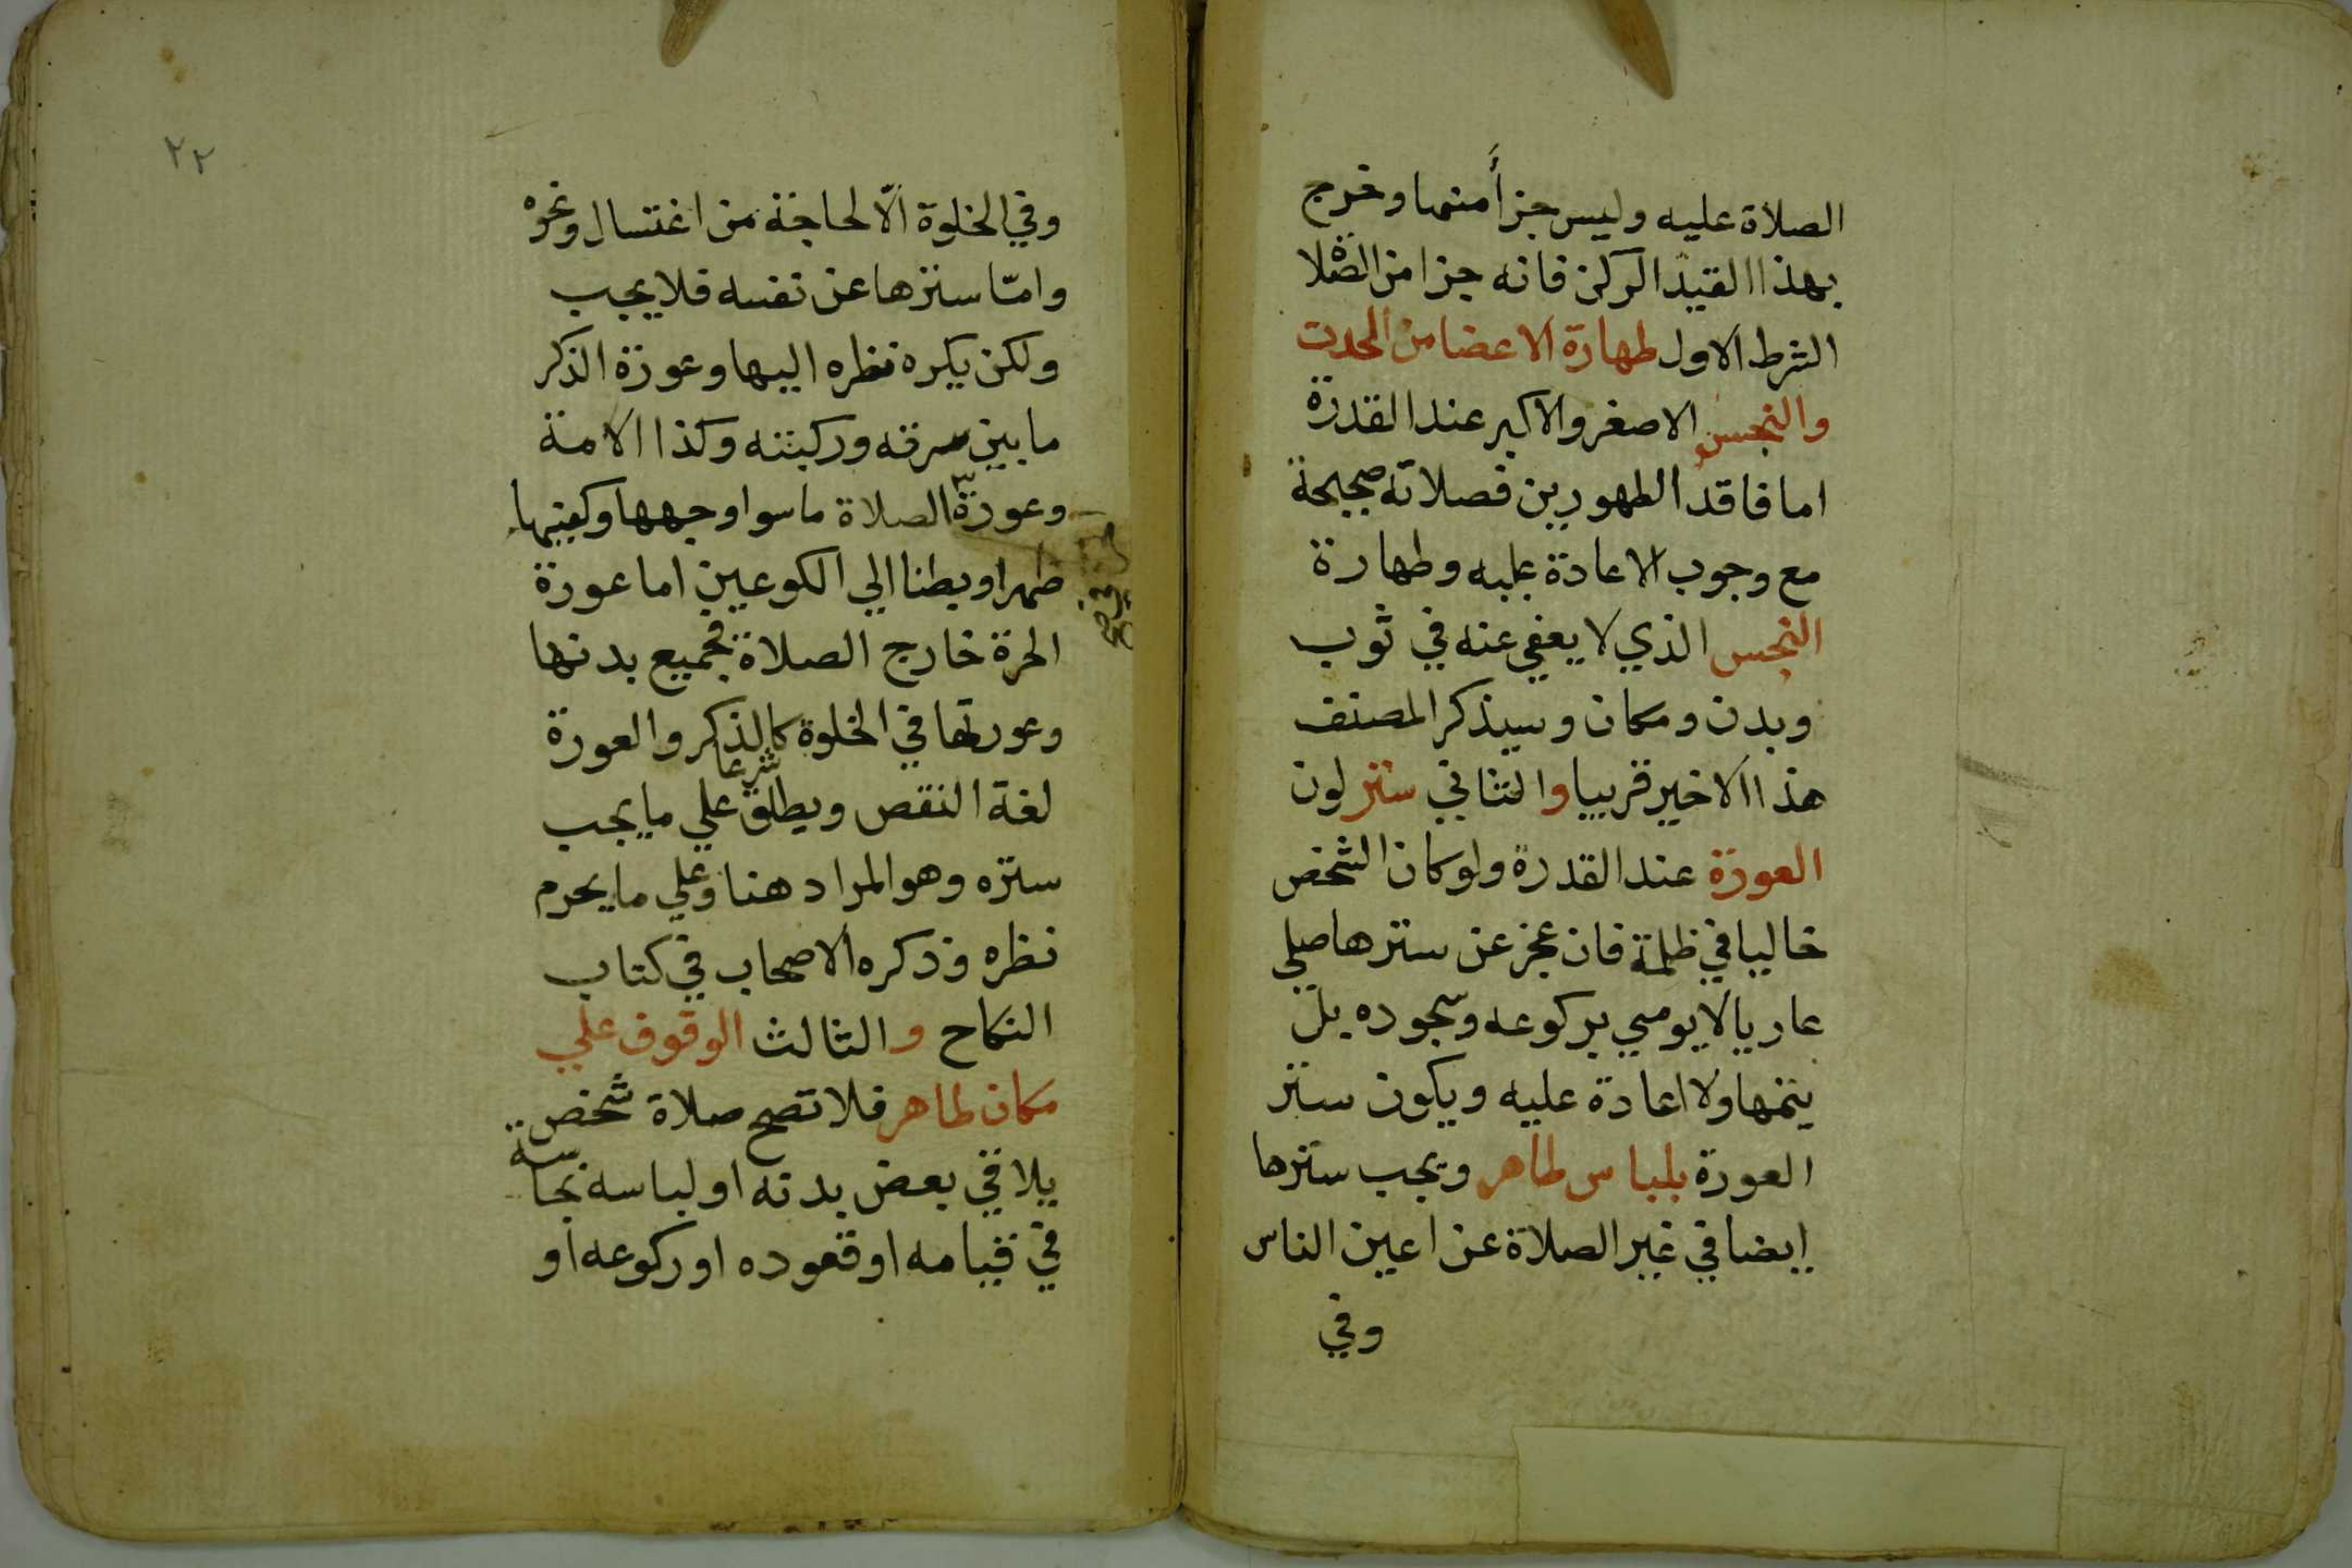 الصلاة عليه وليس جزأ منها وخرج
بهذا القيد الركن فانه جزا من الصلاة
الشرط الاول طهارة الاعضا من الحدث
والنجس الاصغر والاكبر عند القدرة
اما فاقد الطهورين فصلاته صحيحة
مع وجوب الاعادة عليه وطهارة
النجس الذي لا يعفي عنه في ثوب
وبدن ومكان وسيذكر المصنف
هذا الاخير قريبا والثاني ستر لون
العورة عند القدرة ولو كان الشخص
خاليا في ظلمة فان عجز عن سترها صلي
عاريا لا يومي بركوعه وسجوده بل
يتمها ولا اعادة عليه ويكون ستر
العورة بلباس طاهر ويجب سترها
ايضا في غير الصلاة عن اعين الناس
وفي
٢٢
وفي الخلوة الّا لحاجة من اغتسال ونحوه
وامّا سترها عن نفسه فلا يجب
ولكن يكره نظره اليها وعورة الذكر
ما بين سرته وركبته وكذا الامة
وعورة الصلاة ما سوا وجهها وكفيها
ظهرا وبطنا الي الكوعين اما عورة
الحرة خارج الصلاة فجميع بدنها
وعورتها في الخلوة كالذكر والعورة
لغة النقص ويطلق شرعا علي ما يجب
ستره وهو المراد هنا وعلي ما يحرم
نظره وذكره الاصحاب في كتاب
النكاح والثالث الوقوف علي
مكان طاهر فلا تصح صلاة شخص
يلاقي بعض بدنه او لباسه نجاسة
في قيامه او قعوده او ركوعه او